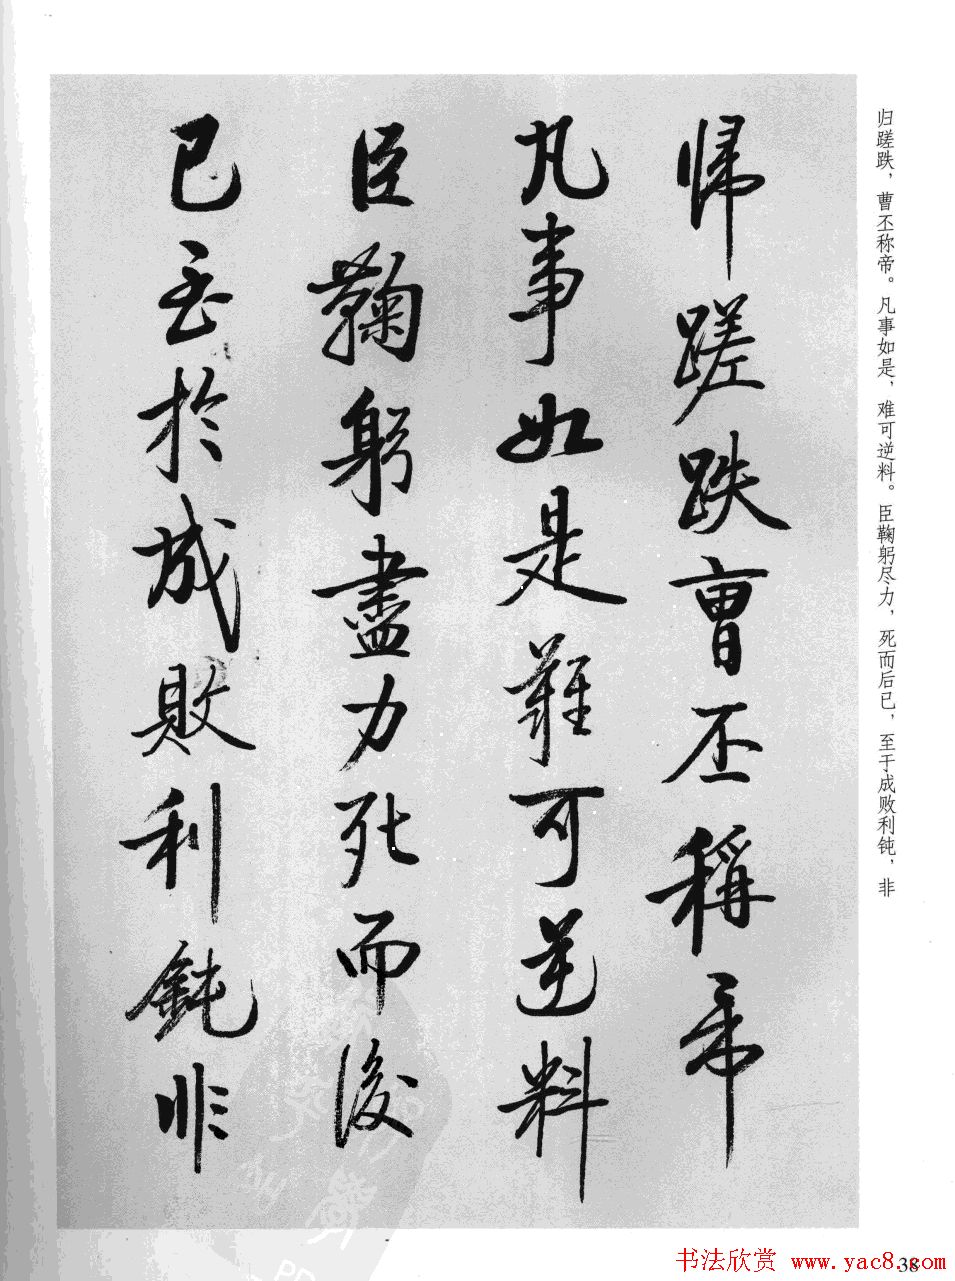 归蹉跌，曹丕称帝。凡事如是，难可逆料。臣鞠躬尽力，死而后已，至于成败利钝，非
帰蹉跌曹丕稱帝
凡事如是難可逆料
臣鞠躬盡力死而後
已至於成敗利鈍非
书法欣赏 www.yac8.com
38